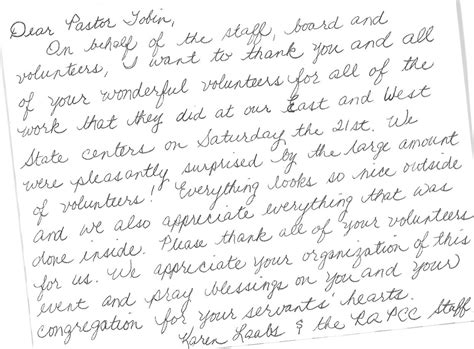 Dear Pastor Tobin,
On behalf of the staff, board and
volunteers, I want to thank you and all
of your wonderful volunteers for all of the
work that they did at our East and West
State centers on Saturday the 21st. We
were pleasantly surprised by the large amount
of volunteers! Everything looks so nice outside
and we also appreciate everything that was
done inside. Please thank all of your volunteers
for us. We appreciate your organization of this
event and pray blessings on you and your
congregation for your servants' hearts.
Karen Laabs & the RAPCC Staff